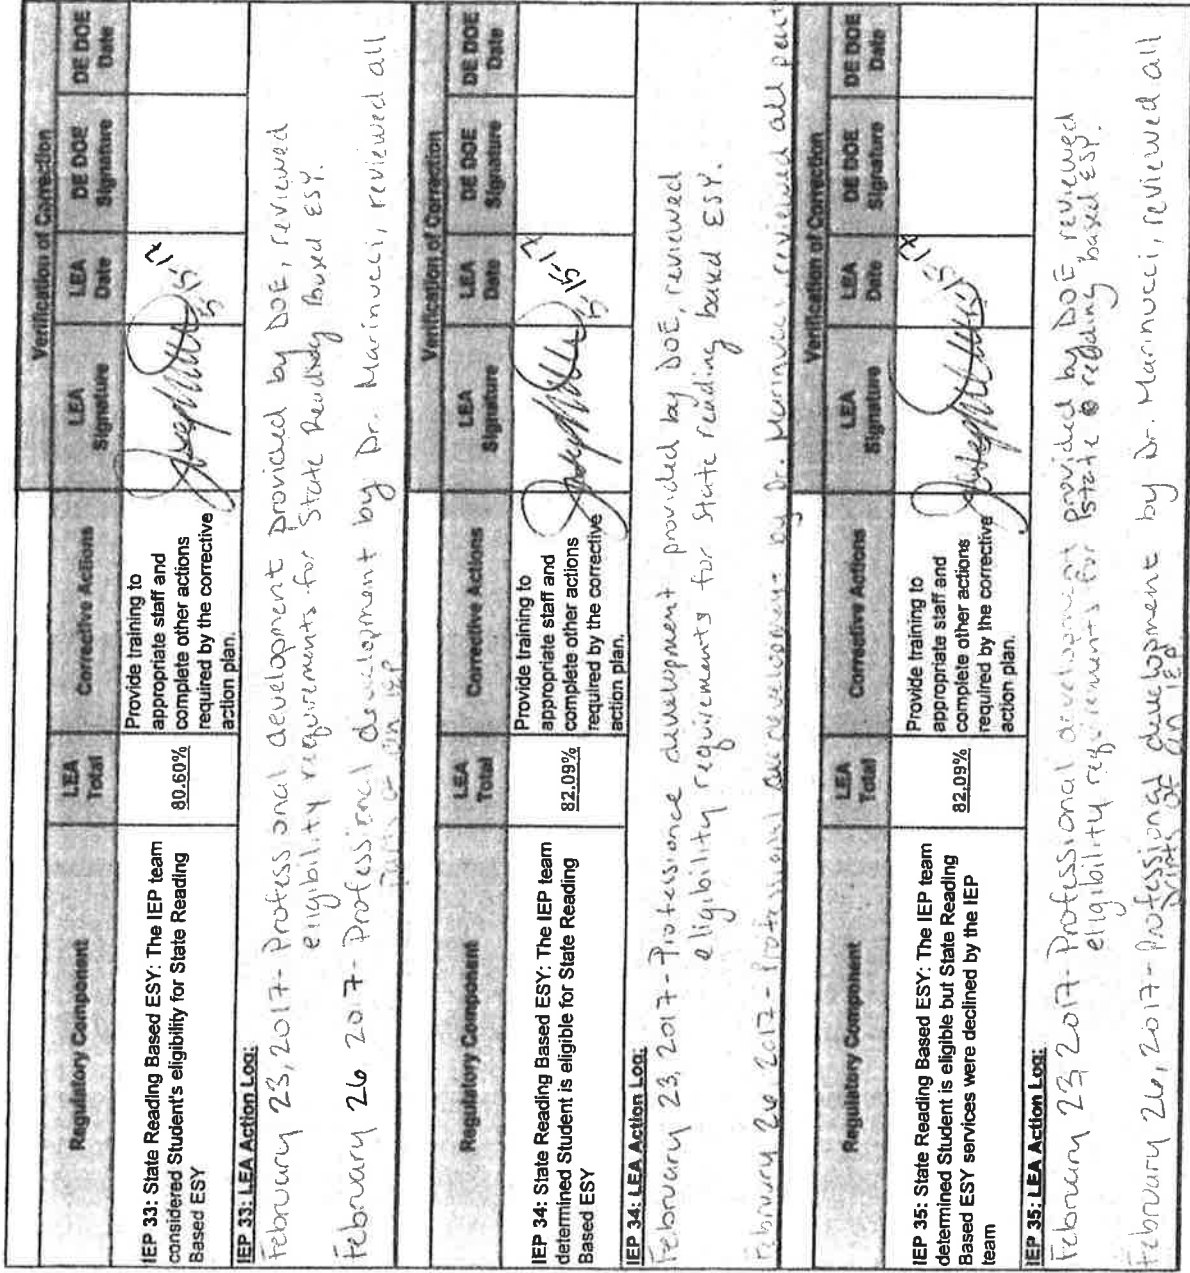 Verification of Correction
Regulatory Component
LEA
Total
Corrective Actions
LEA
Signature
LEA
Date
DE DOE
Signature
DE DOE
Date
IEP 33: State Reading Based ESY: The IEP team
considered Student's eligibility for State Reading
Based ESY
80.60%
Provide training to
appropriate staff and
complete other actions
required by the corrective
action plan.
5-15-17
IEP 33: LEA Action Log:
February 23, 2017 - Professional development provided by DOE, reviewed
eligibility requirements for State Reading Based ESY.
February 26 2017 - Professional development by Dr. Marinucci, reviewed all
parts of an IEP
Verification of Correction
Regulatory Component
LEA
Total
Corrective Actions
LEA
Signature
LEA
Date
DE DOE
Signature
DE DOE
Date
IEP 34: State Reading Based ESY: The IEP team
determined Student is eligible for State Reading
Based ESY
82.09%
Provide training to
appropriate staff and
complete other actions
required by the corrective
action plan.
5-15-17
IEP 34: LEA Action Log:
February 23, 2017 - Professional development provided by DOE, reviewed
eligibility requirements for State reading based ESY.
February 26 2017 - Professional development by Dr. Marinucci reviewed all
Verification of Correction
Regulatory Component
LEA
Total
Corrective Actions
LEA
Signature
LEA
Date
DE DOE
Signature
DE DOE
Date
IEP 35: State Reading Based ESY: The IEP team
determined Student is eligible but State Reading
Based ESY services were declined by the IEP
team
82.09%
Provide training to
appropriate staff and
complete other actions
required by the corrective
action plan.
5-15-17
IEP 35: LEA Action Log:
February 23, 2017 - Professional development provided by DOE, reviewed
eligibility requirements for state reading based ESY.
February 26, 2017 - Professional development by Dr. Marinucci, reviewed all
parts of an IEP